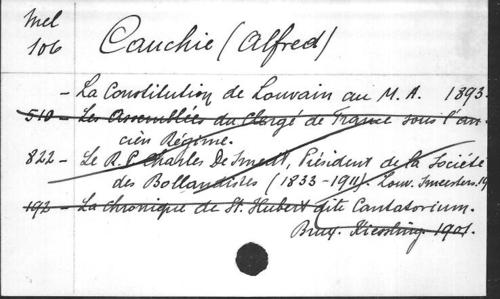 Mel
106
Cauchie (Alfred)
- La Constitution de Louvain au M. A. 1893.
510 - Les Assemblées du Clergé de France sous l'an-
cien Régime.
822 - Le R. P. Charles De Smedt, Président de la Société
des Bollandistes (1833-1911). Louv. Smeesters. 19
192 - La chronique de St. Hubert dite Cantatorium.
Brux. Kiessling. 1901.